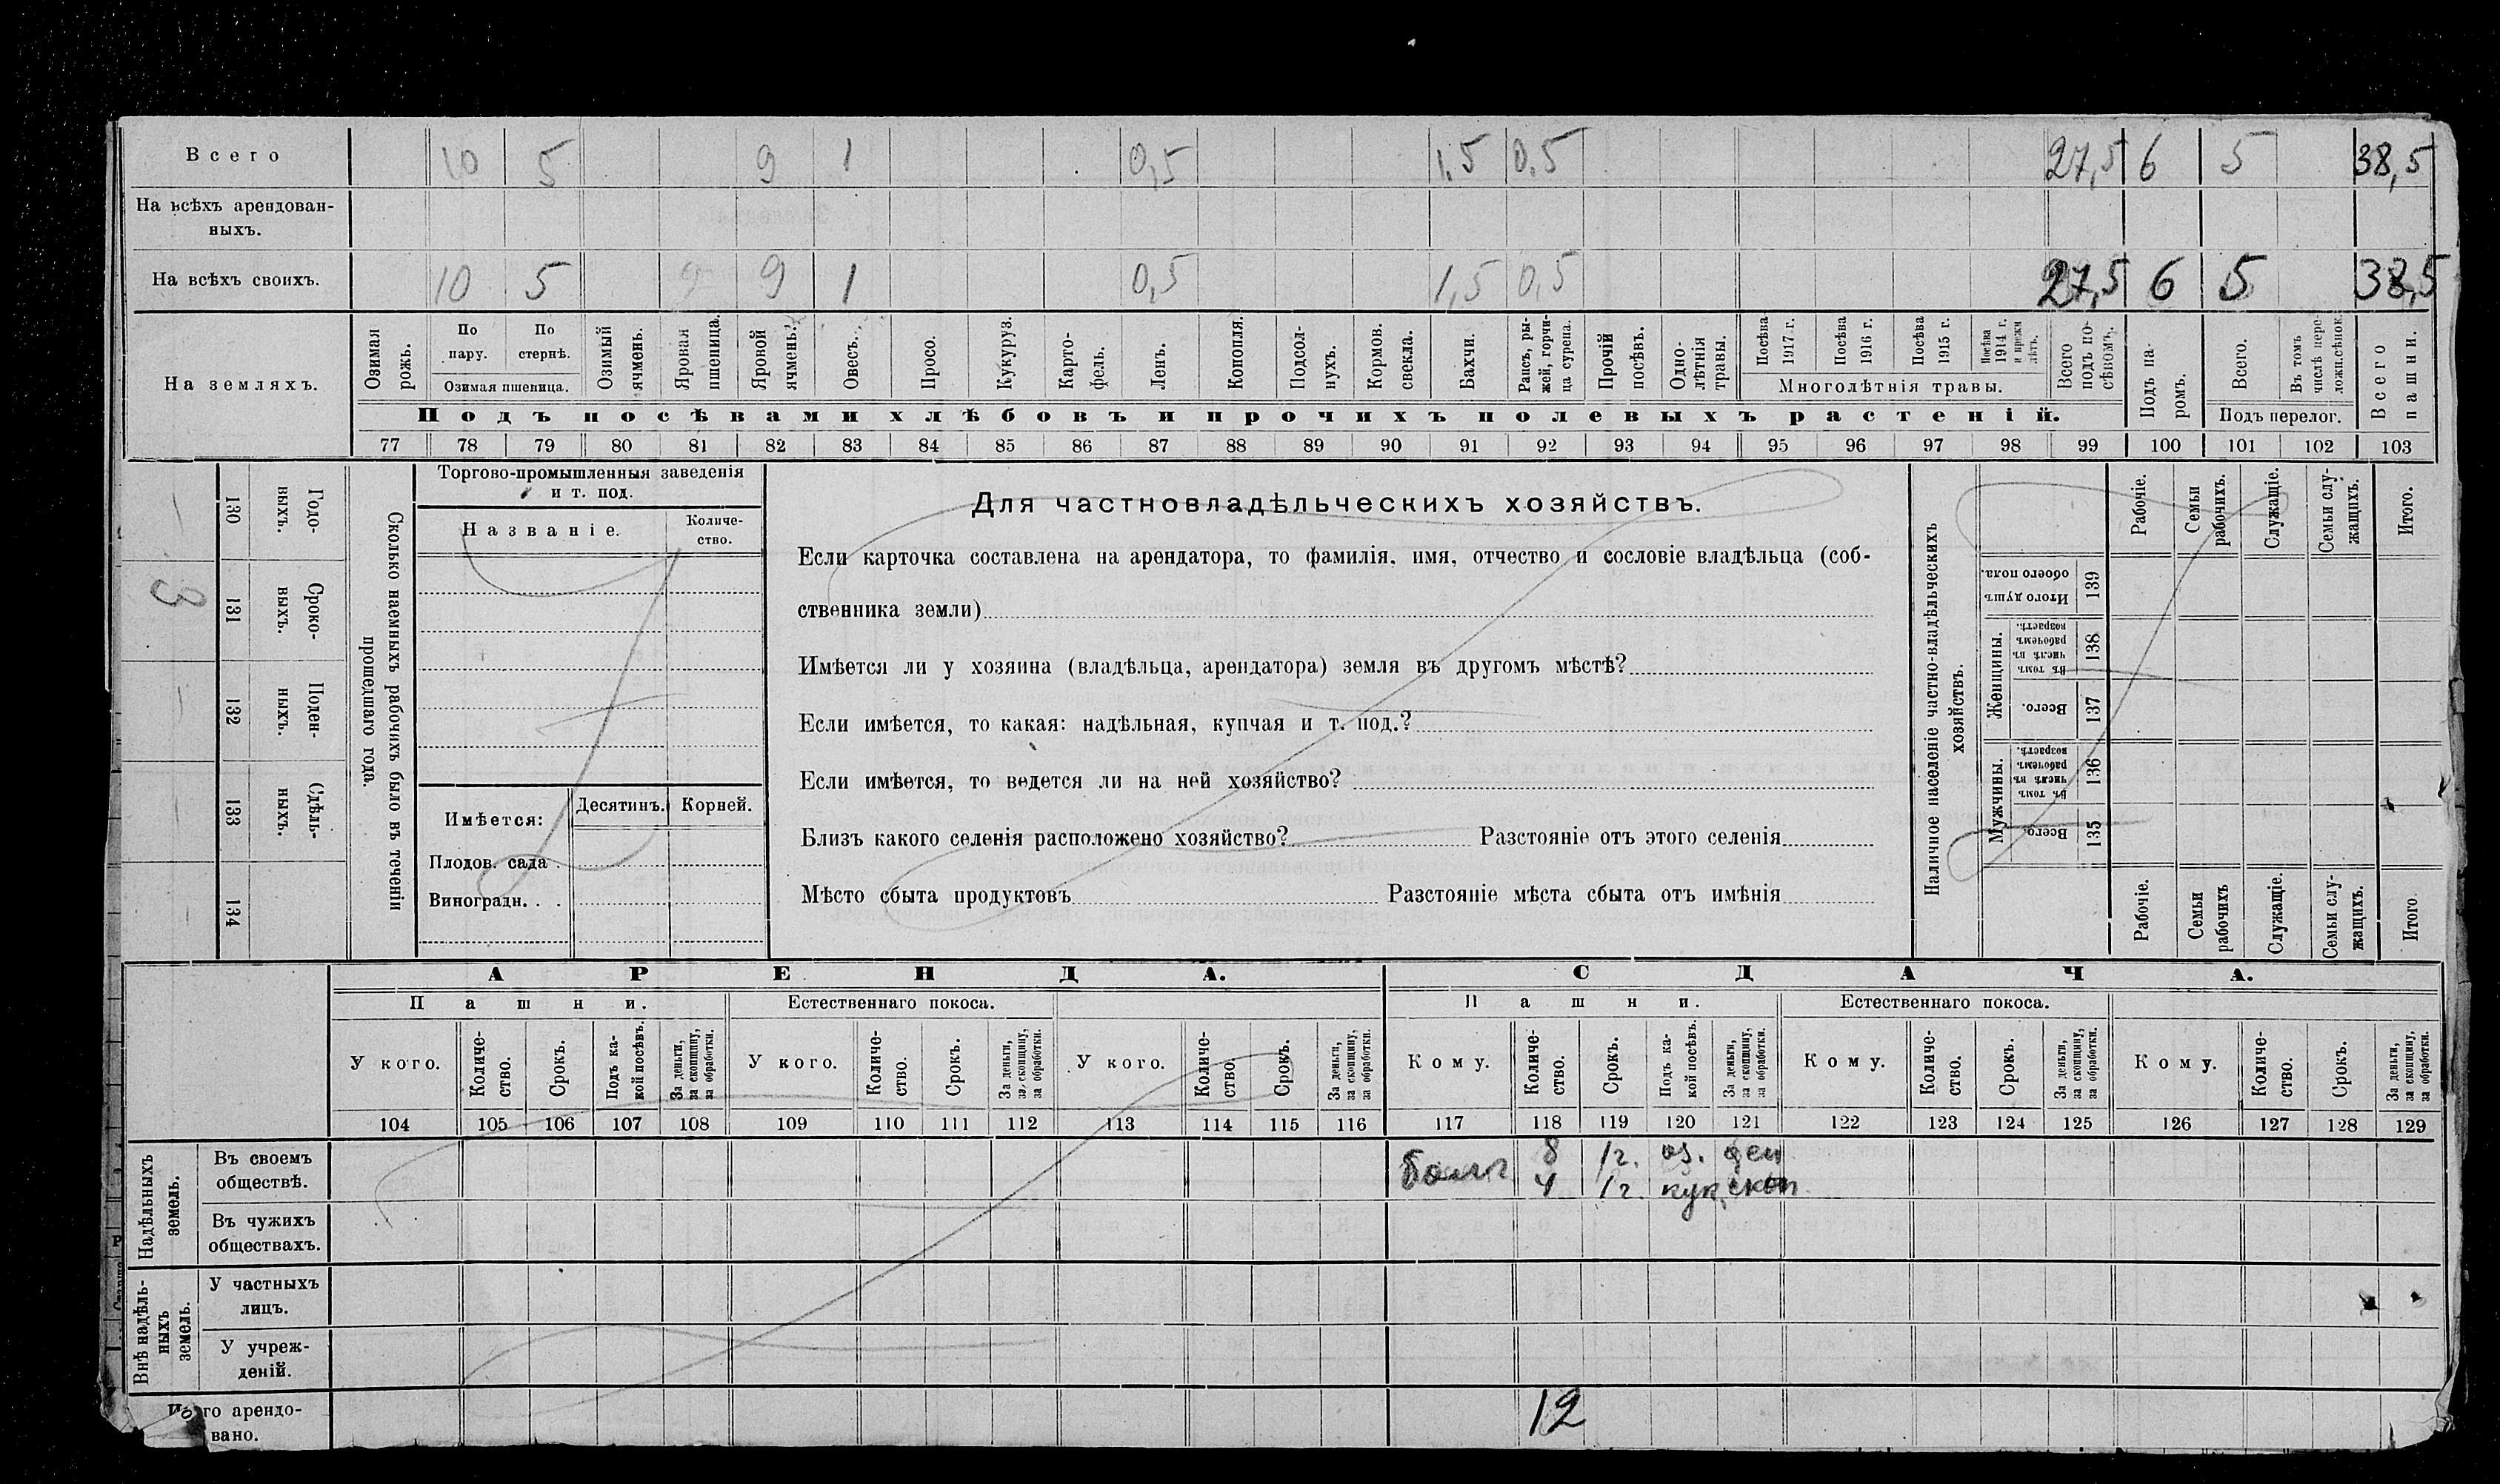 Всего 10 5 9 1 0,5 1,5 0,5 27,5 6 5 38,5
На всѣхъ арендован-
ныхъ.
На всѣхъ своихъ. 10 5 9 9 1 0,5 1,5 0,5 27,5 6 5 38,5
На земляхъ.
Озимая рожь.
По пару.
По стернѣ.
Озимая пшеница.
Озимый ячмень.
Яровая пшеница.
Яровой ячмень.
Овесъ.
Просо.
Кукуруз.
Карто-
фель.
Ленъ.
Конопля.
Подсол-
нухъ.
Кормов. свекла.
Бахчи.
Рапсъ, ры-
жей, горчи-
ца сурепа.
Прочій посѣвъ.
Одно-
лѣтнія травы.
Посѣва 1917 г.
Посѣва 1916 г.
Посѣва 1915 г.
Посѣва 1914 г. и прежн лѣтъ.
Многолѣтнія травы.
Всего подъ по-
сѣвомъ.
Подъ па-
ромъ.
Всего.
Въ томъ числѣ пере-
ложн.сѣнок.
Подъ перелог.
Всего пашни.
Подъ посѣвами хлѣбовъ и прочихъ полевыхъ растеній.
77 78 79 80 81 82 83 84 85 86 87 88 89 90 91 92 93 94 95 96 97 98 99 100 101 102 103
Сколько наемныхъ рабочихъ было въ теченіи
прошедшаго года.
Годо-
выхъ.
130
Сроко-
выхъ.
131
3
Поден-
ныхъ.
132
Сдѣль-
ныхъ.
133
134
Торгово-промышленныя заведенія
и т. под.
Названіе.
Количе-
ство.
Имѣется: Десятинъ. Корней.
Плодов. сада
Виноградн. . .
Для частновладѣльческихъ хозяйствъ.
Если карточка составлена на арендатора, то фамилія, имя, отчество и сословіе владѣльца (соб-
ственника земли)
Имѣется ли у хозяина (владѣльца, арендатора) земля въ другомъ мѣстѣ?
Если имѣется, то какая: надѣльная, купчая и т. под.?
Если имѣется, то ведется ли на ней хозяйство?
Близъ какого селенія расположено хозяйство? Разстояніе отъ этого селенія
Мѣсто сбыта продуктовъ Разстояніе мѣста сбыта отъ имѣнія
Наличное населеніе частно-владѣльческихъ
хозяйствъ.
Рабочіе.
Семьи рабочихъ.
Служащіе.
Семьи слу-
жащихъ.
Итого.
Итого душ обоего пола.
139
Женщины.
Въ томъ числѣ въ рабочемъ возрастѣ.
138
Всего.
137
Мужчины.
Въ томъ числѣ въ рабочемъ возрастѣ.
136
Всего.
135
Рабочіе.
Семьи рабочихъ
Служащіе.
Семьи слу-
жащихъ.
Итого
АРЕНДА. СДАЧА.
Пашни. Естественнаго покоса. Пашни. Естественнаго покоса.
У кого.
Количе-
ство.
Срокъ.
Подъ ка-
кой посѣвъ.
За деньги,
за скопщину,
за обработки.
У кого.
Количе-
ство.
Срокъ.
За деньги,
за скопщину,
за обработки.
У кого.
Количе-
ство.
Срокъ.
За деньги,
за скопщину,
за обработки.
Кому.
Количе-
ство.
Срокъ.
Подъ ка-
кой посѣвъ.
За деньги,
за скопщину,
за обработки.
Кому.
Количе-
ство.
Срокъ.
За деньги,
за скопщину,
за обработки.
Кому.
Количе-
ство.
Срокъ.
За деньги,
за скопщину,
за обработки.
104 105 106 107 108 109 110 111 112 113 114 115 116 117 118 119 120 121 122 123 124 125 126 127 128 129
Надѣльныхъ
земель.
Въ своемъ
обществѣ.
8 1г. оз. ден
4 1г. кук. скоп
Въ чужихъ
обществахъ.
Внѣ надѣль-
ныхъ
земель.
У частныхъ
лицъ.
У учреж-
деній.
Итого арендо-
вано.
12